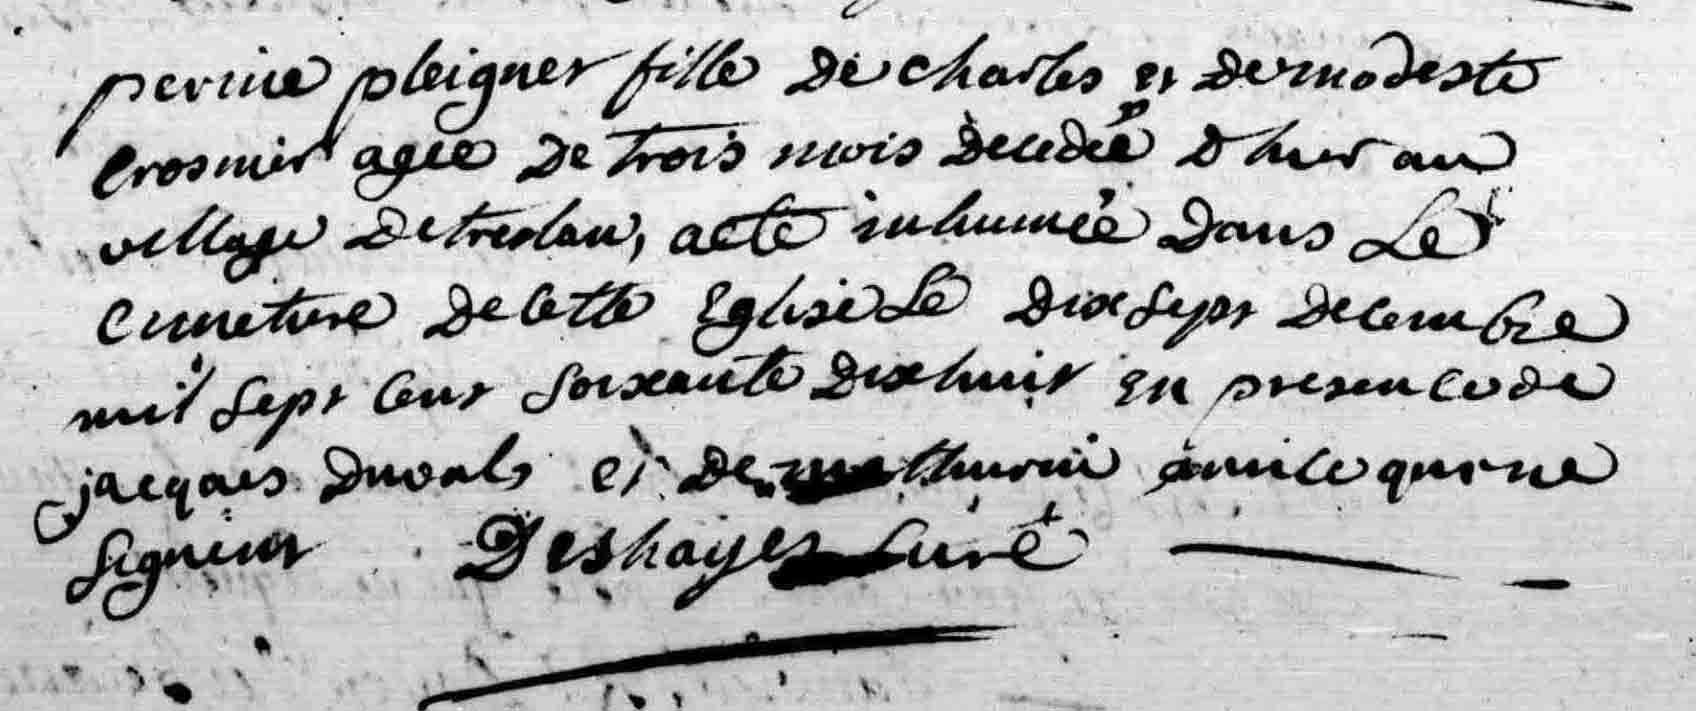 perrine pleigner fille de charles et de modeste
Crosnier agée de trois mois decedée d'hier au
village de treslan, a eté inhumée dans Le
cimetiere de cette Eglise Le dix sept decembre
mil sept cent soixante dix huit en presence de
jacques duvals et de mathurin qui ne
signent Deshayes Curé